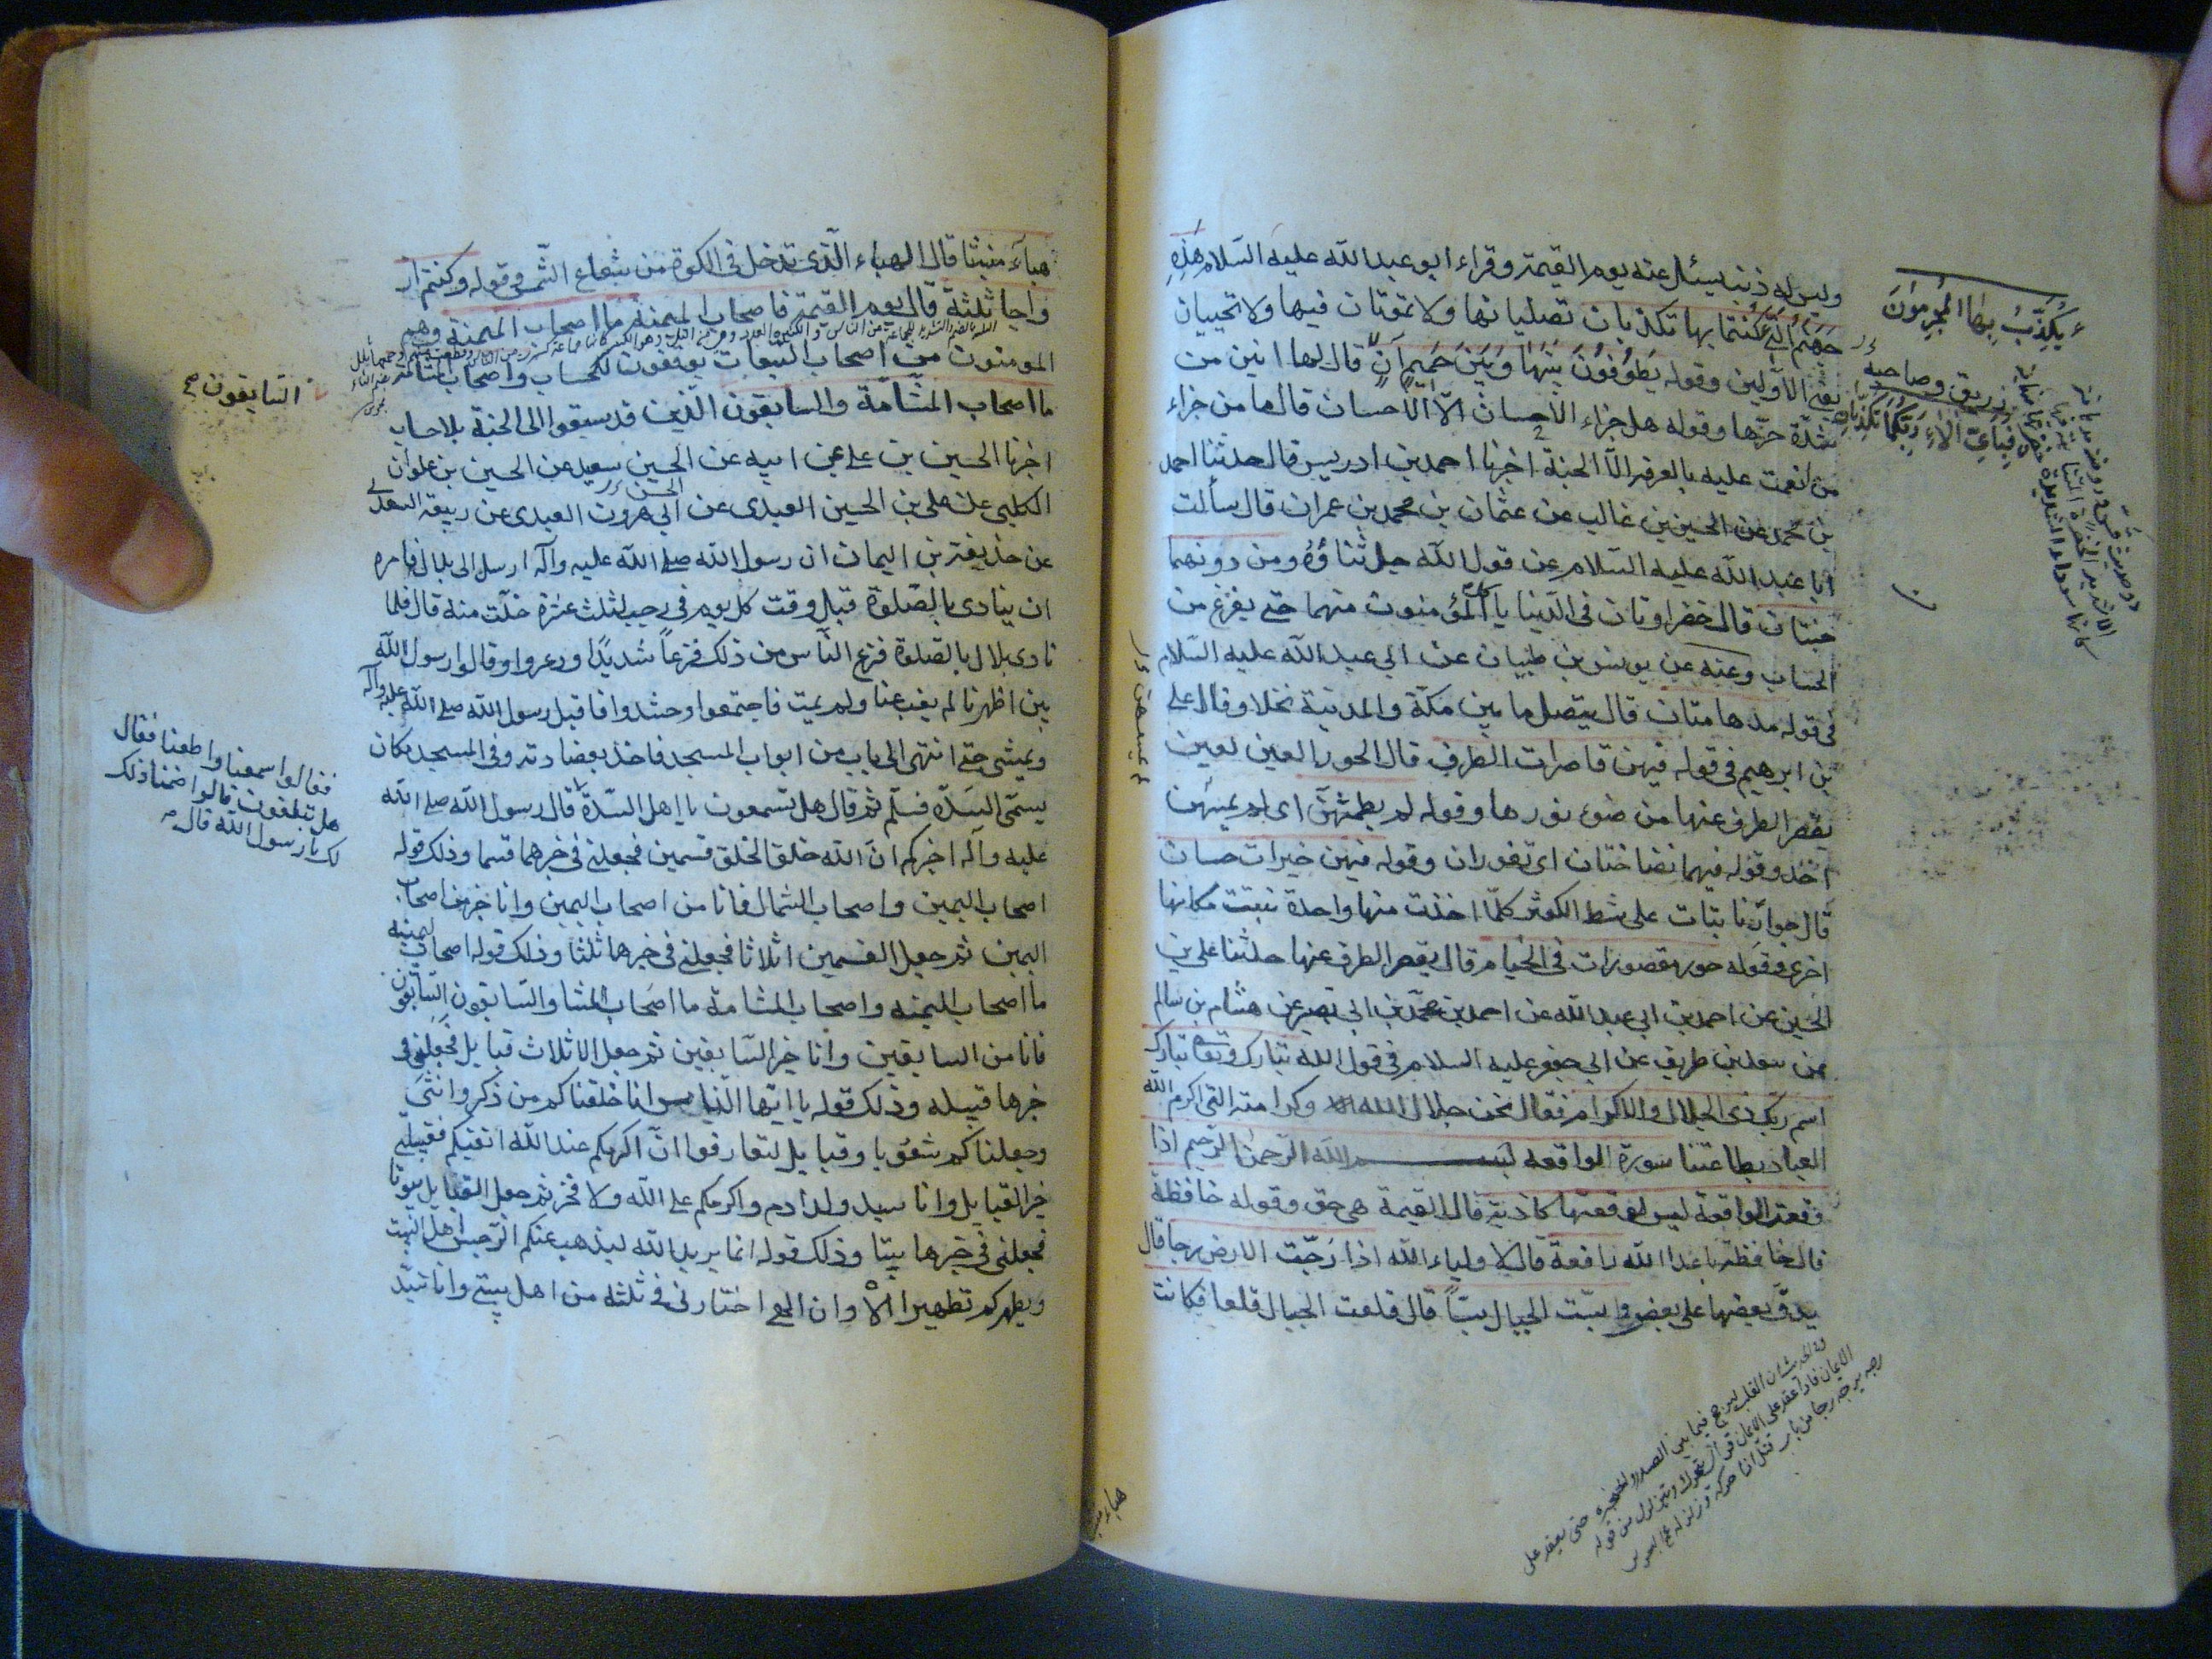 وليس له ذنب يسئل عنه يوم القيمة وقراء ابو عبد الله عليه السلام هذه
جهنم التي كنتما بها تكذبان تصليانها ولا تموتان فيها ولا تحييان
يعنى الاولين وقوله يطوفون بينها وبين حميم آن قال لها انين من
شدة حرها وقوله هل جزاء الاحسان الا الاحسان قال ما من جزاء
من انعمت عليه بالمعرفة الا الجنة اخبرنا احمد بن ادريس قال حدثنا احمد
بن محمد عن الحسين بن غالب عن عثمان بن محمد بن عمران قال سألت
ابا عبد الله عليه السلام عن قول الله جل ثناؤه ومن دونهما
جنتان قال خضراوتان فى الدنيا ياكل المؤمنون منهما حتى يفرغ من
الحساب وعنه عن يونس بن ظبيان عن ابي عبد الله عليه السلام
فى قوله مدهامتان قال يتصل ما بين مكة والمدينة نخلا وقال على
بن ابرهيم فى قوله فيهن قاصرات الطرف قال الحور العين
يقصر الطرف عنها من ضوء نورها وقوله لم يطمثهن اى لم يمسهن
احد وقوله فيهما نضاختان اى تفوران وقوله فيهن خيرات حسان
قال جوار نابتات على شط الكوثر كلما اخذت منها واحدة نبتت مكانها
اخرى وقوله حور مقصورات فى الخيام قال يقصر الطرف عنها حدثنا على بن
الحسين عن احمد بن ابي عبد الله عن احمد بن محمد بن ابي نصر عن هشام بن سالم
عن سعد بن طريف عن ابي جعفر عليه السلام فى قول الله تبارك وتعالى تبارك
اسم ربك ذى الجلال والاكرام فقال نحن جلال الله وكرامته التى اكرم الله
العباد بطاعتنا سورة الواقعه بسم الله الرحمن الرحيم اذا
وقعت الواقعة ليس لوقعتها كاذبة قال القيمة هى حق وقوله خافضة
قال خافضة باعداء الله رافعة قال لاولياء الله اذا رجت الارض رجا قال
يدق بعضها على بعض وبست الجبال بسا قال قلعت الجبال قلعا فكانت
يكذب بها المجرمون
زريق وصاحبه
فباى الاء ربكما تكذبان
هباء منبثا قال الهباء الذى تدخل فى الكوة من شعاع الشمس وقوله وكنتم از
واجا ثلثة قال يوم القيمة فاصحاب الميمنة ما اصحاب الميمنة وهم
المومنون من اصحاب التبعات يوقفون للحساب واصحاب المشامة
ما اصحاب المشأمة والسابقون الذين قد سبقوا الى الجنة بلا حساب
السابقون صح
اخبرنا الحسين بن على عن ابيه عن الحسين سعيد عن الحسين بن علوان
الكلبي عن على بن الحسين العبدى عن ابي هرون العبدى عن ربيعة السعدى
عن حذيفة بن اليمان ان رسول الله صلى الله عليه وآله ارسل الى بلال فامره
ان ينادى بالصلوة قبل وقت كل يوم فى رجب لثلث عشرة خلت منه قال فلما
نادى بلال بالصلوة فزع الناس من ذلك فزعاً شديدًا وذعروا وقالوا رسول الله
بين اظهرنا لم يغب عنا ولم يمت فاجتمعوا وحشدوا فاقبل رسول الله صلى الله عليه وآله
ويمشى حتى انتهى الى باب من ابواب المسجد فاخذ بعضادته وفى المسجد مكان
يسمى السدة فسلم ثم قال هل تسمعون يا اهل السدة قال رسول الله صلى الله
فقالوا سمعنا واطعنا فقال
هل تبلغون قالوا ضمنا ذلك
لك يا رسول الله قال
عليه وآله اخبركم ان الله خلق الخلق قسمين فجعلنى فى خيرهما قسما وذلك قوله
اصحاب اليمين واصحاب الشمال فانا من اصحاب اليمين وانا خير من اصحاب
اليمين ثم جعل القسمين اثلاثا فجعلنى فى خيرها ثلثا وذلك قوله اصحاب الميمنه
ما اصحاب الميمنه واصحاب المشامة ما اصحاب المشا والسابقون السابقون
فانا من السابقين وانا خير السابقين ثم جعل الاثلاث قبايل فجعلنى فى
خيرها قبيله وذلك قوله يا ايها الناس انا خلقناكم من ذكر وانثى
وجعلناكم شعوبا وقبايل لتعارفوا ان اكرمكم عند الله اتقيكم فقبيلتى
خير القبايل وانا سيد ولد ادم واكرمكم على الله ولا فخر ثم جعل القبايل بيوتا
فجعلنى فى خيرها بيتا وذلك قوله انما يريد الله ليذهب عنكم الرجس اهل البيت
ويطهركم تطهيرا الا وان الهى اختارنى فى ثلثه من اهل بيتى وانا سيد